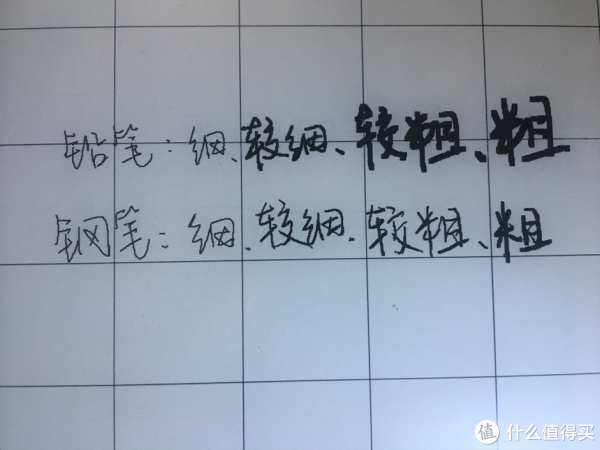 铅笔：细、较细、较粗、粗
钢笔：细、较细、较粗、粗
值 什么值得买